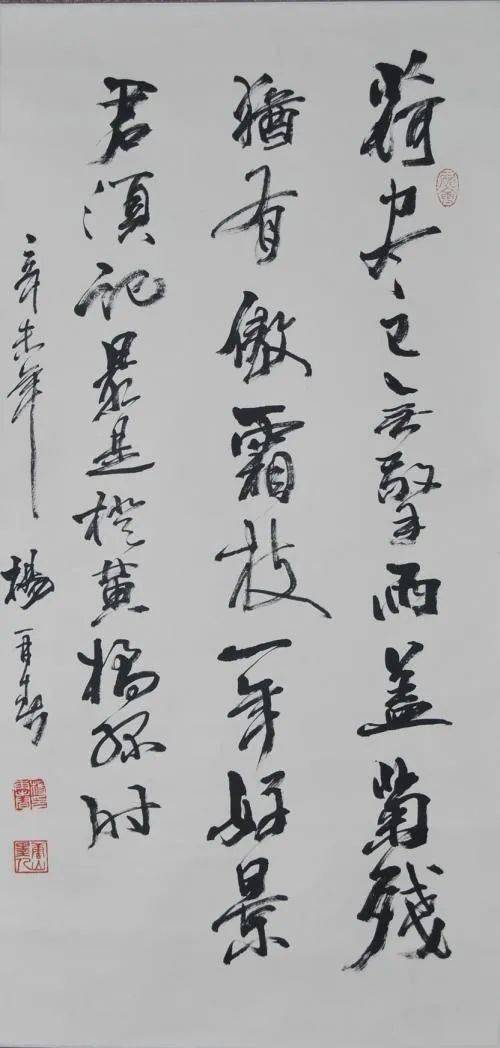 荷尽已无擎雨盖菊残
猶有傲霜枝一年好景
君須記最是橙黄橘绿时
辛未年 楊再春